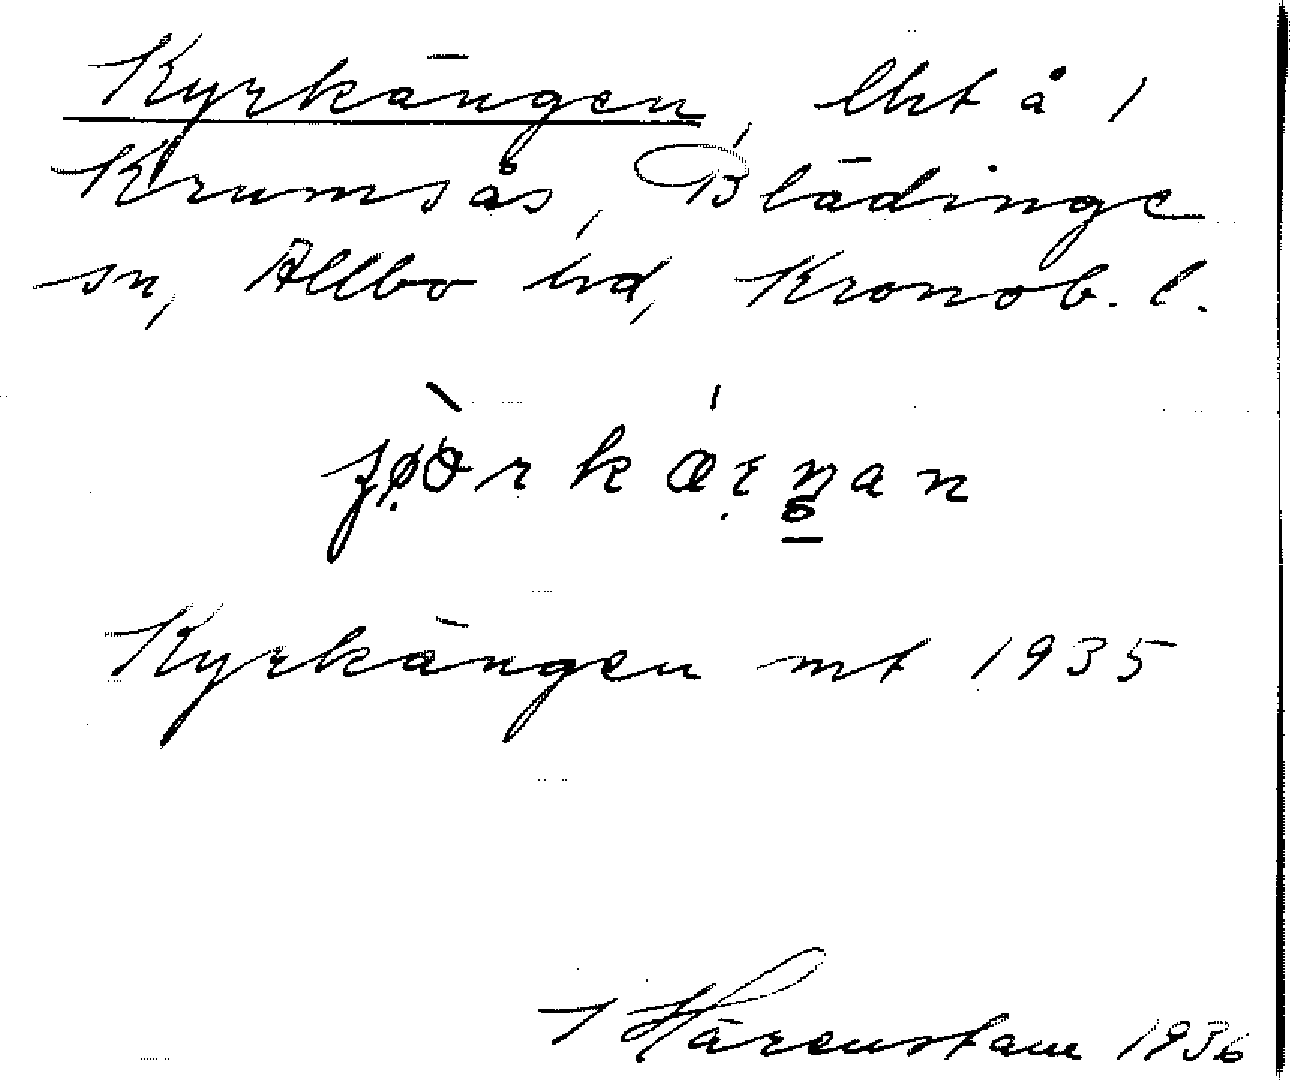 Kyrkängen, lht å 1
Krumsås, Blädinge
sn, Allbo hd, Kronob. l.
Kyrkängen mt 1935
J Härenstam 1936